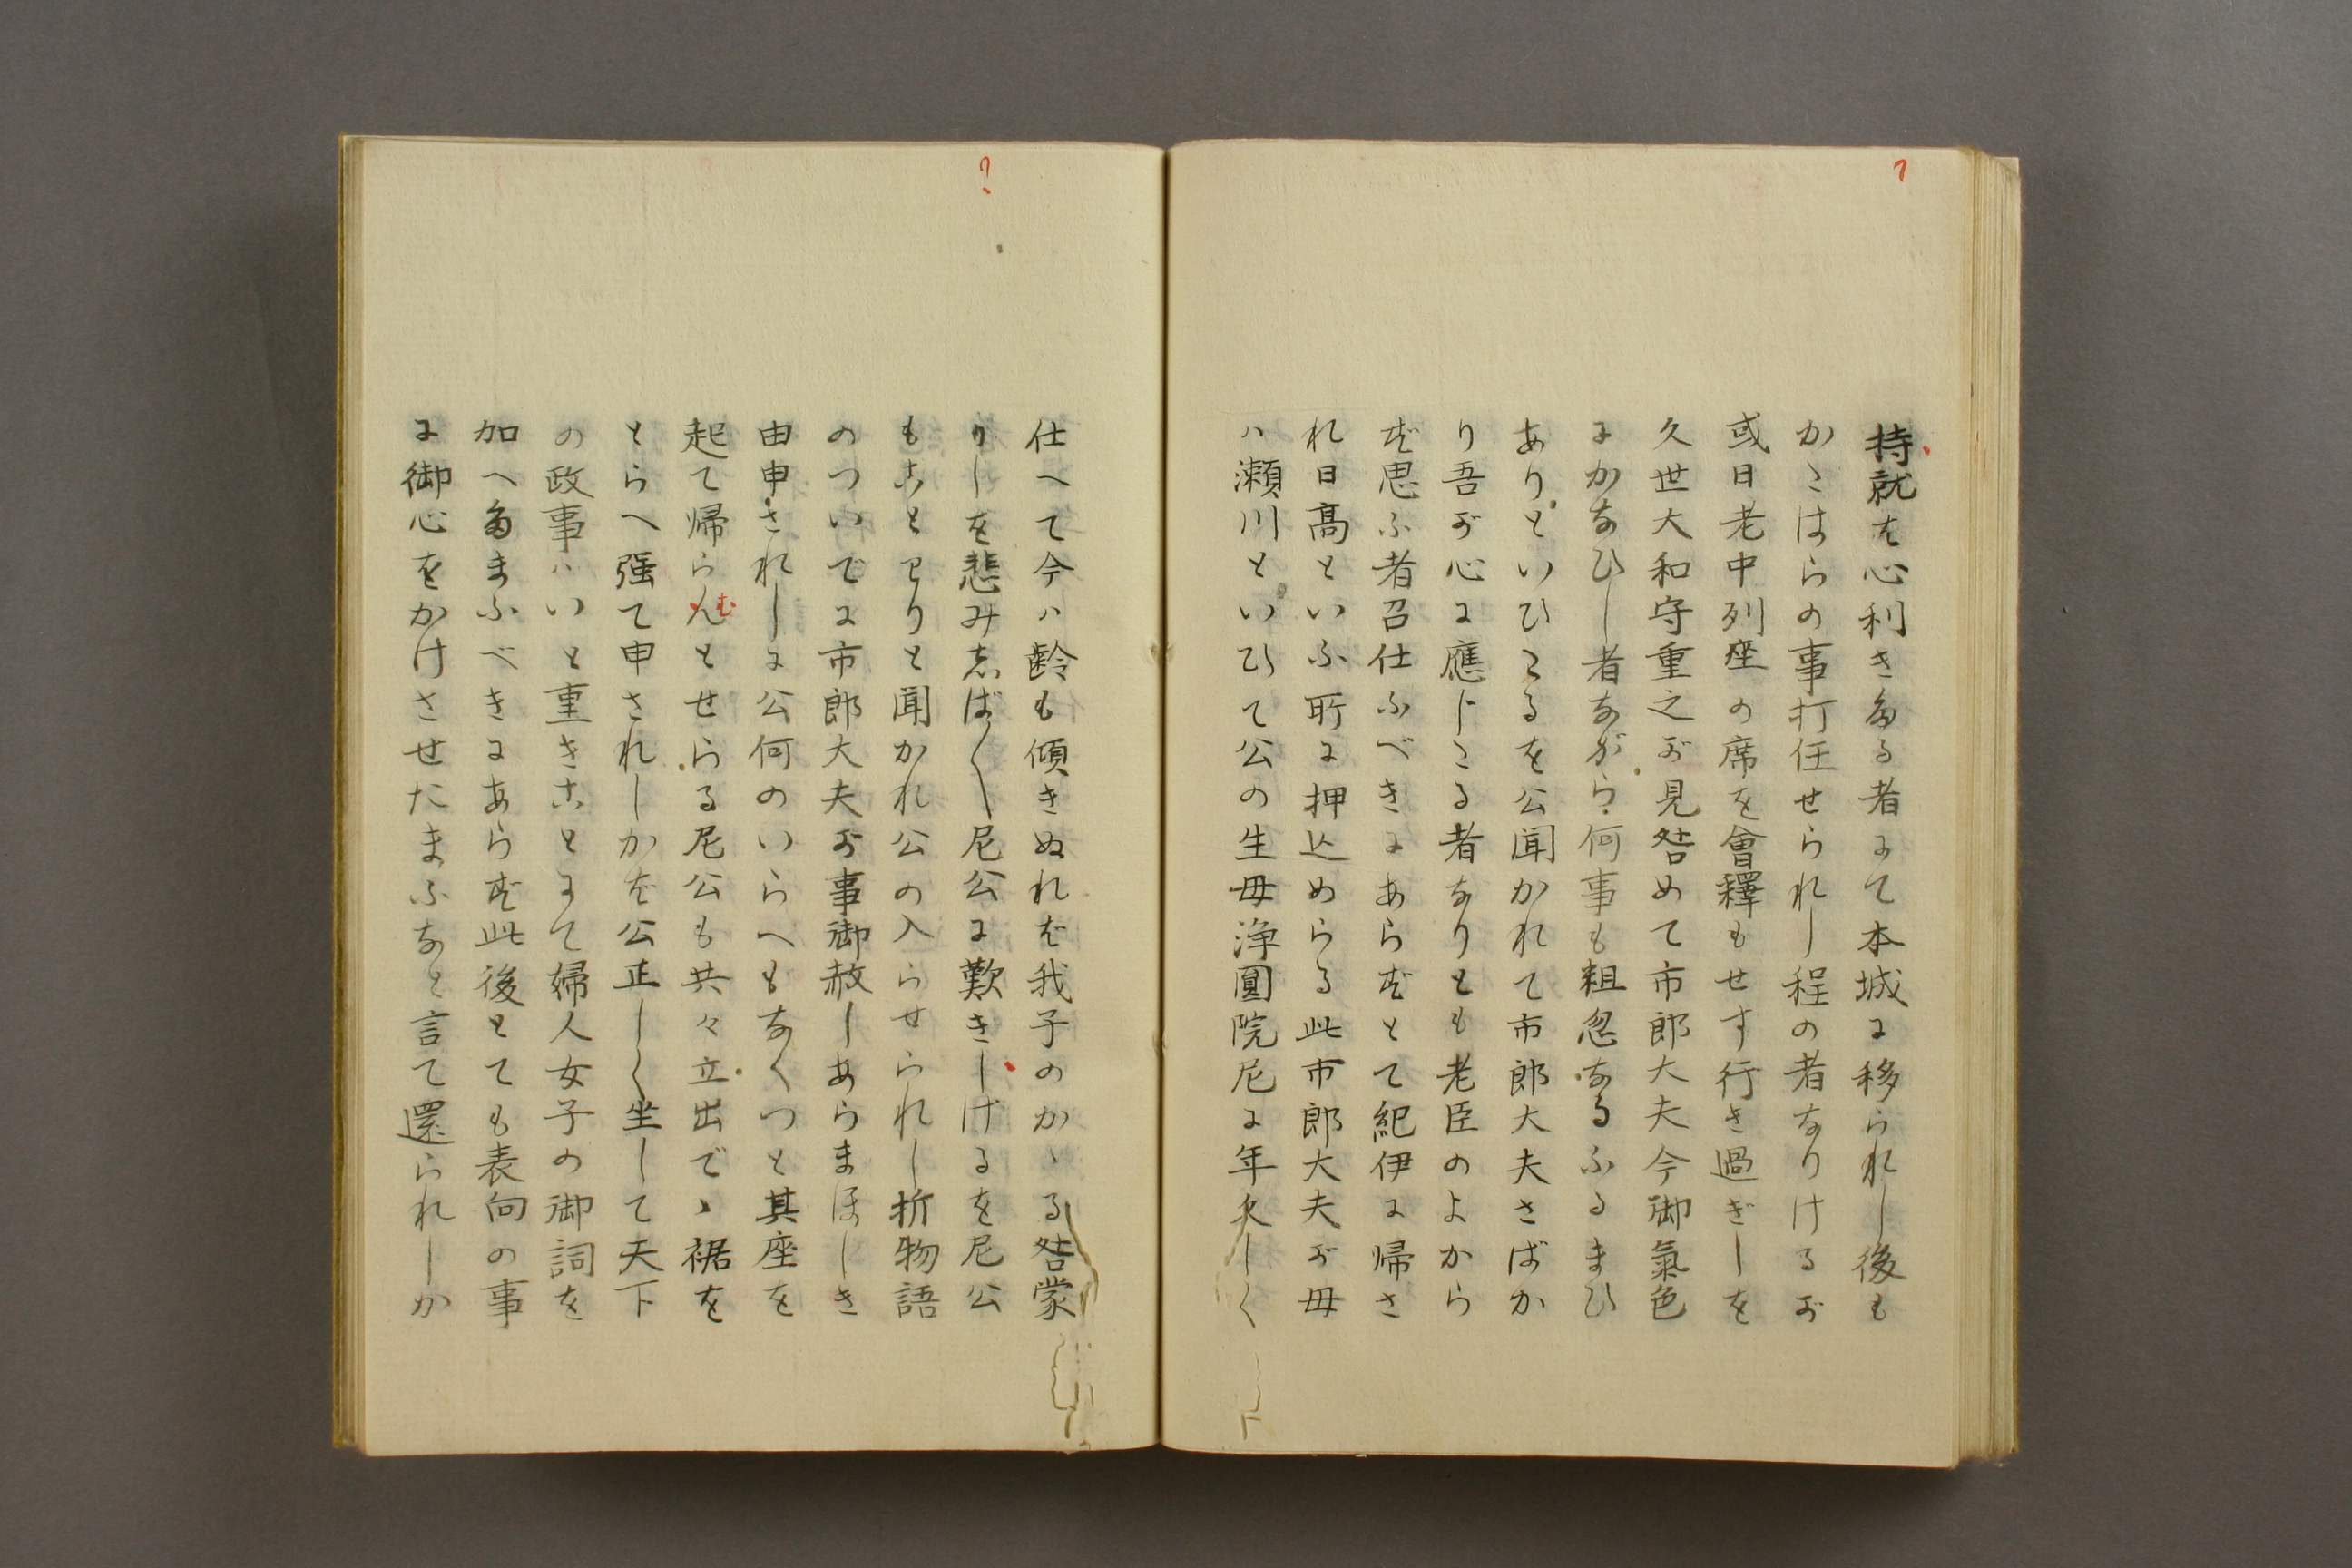 持就は心利きたる者にて本城に移られし後も
かゝはらの事打任せられし程の者なりけるが
或日老中列座の席を會釋もせす行き過ぎしを
久世大和守重之が見咎めて市郎大夫今御氣色
にかなひし者ながら何事も粗忽なるふるまひ
ありといひたるを公聞かれて市郎大夫さばか
り吾が心に應じたる者なりとも老臣のよから
ず思ふ者召仕ふべきにあらずとて紀伊に帰さ
れ日高といふ所に押込めらる此市郎大夫が母
ハ瀬川といひて公の生母浄圓院尼に年久しく
仕へて今ハ齢も傾きぬれば我子のかゝる咎蒙
りしを悲みしば〱尼公に歎きしけるを尼公
もことわりと聞かれ公の入らせられし折物語
のついでに市郎大夫が事御赦しあらまほしき
由申されしに公何のいらへもなくつと其座を
起て帰らんとせらる尼公も共々立出でゝ裾を
む
とらへ強て申されしかば公正しく坐して天下
の政事ハいと重きことにて婦人女子の御詞を
加へたまふべきにあらず此後とても表向の事
に御心をかけさせたまふなと言て還られしか